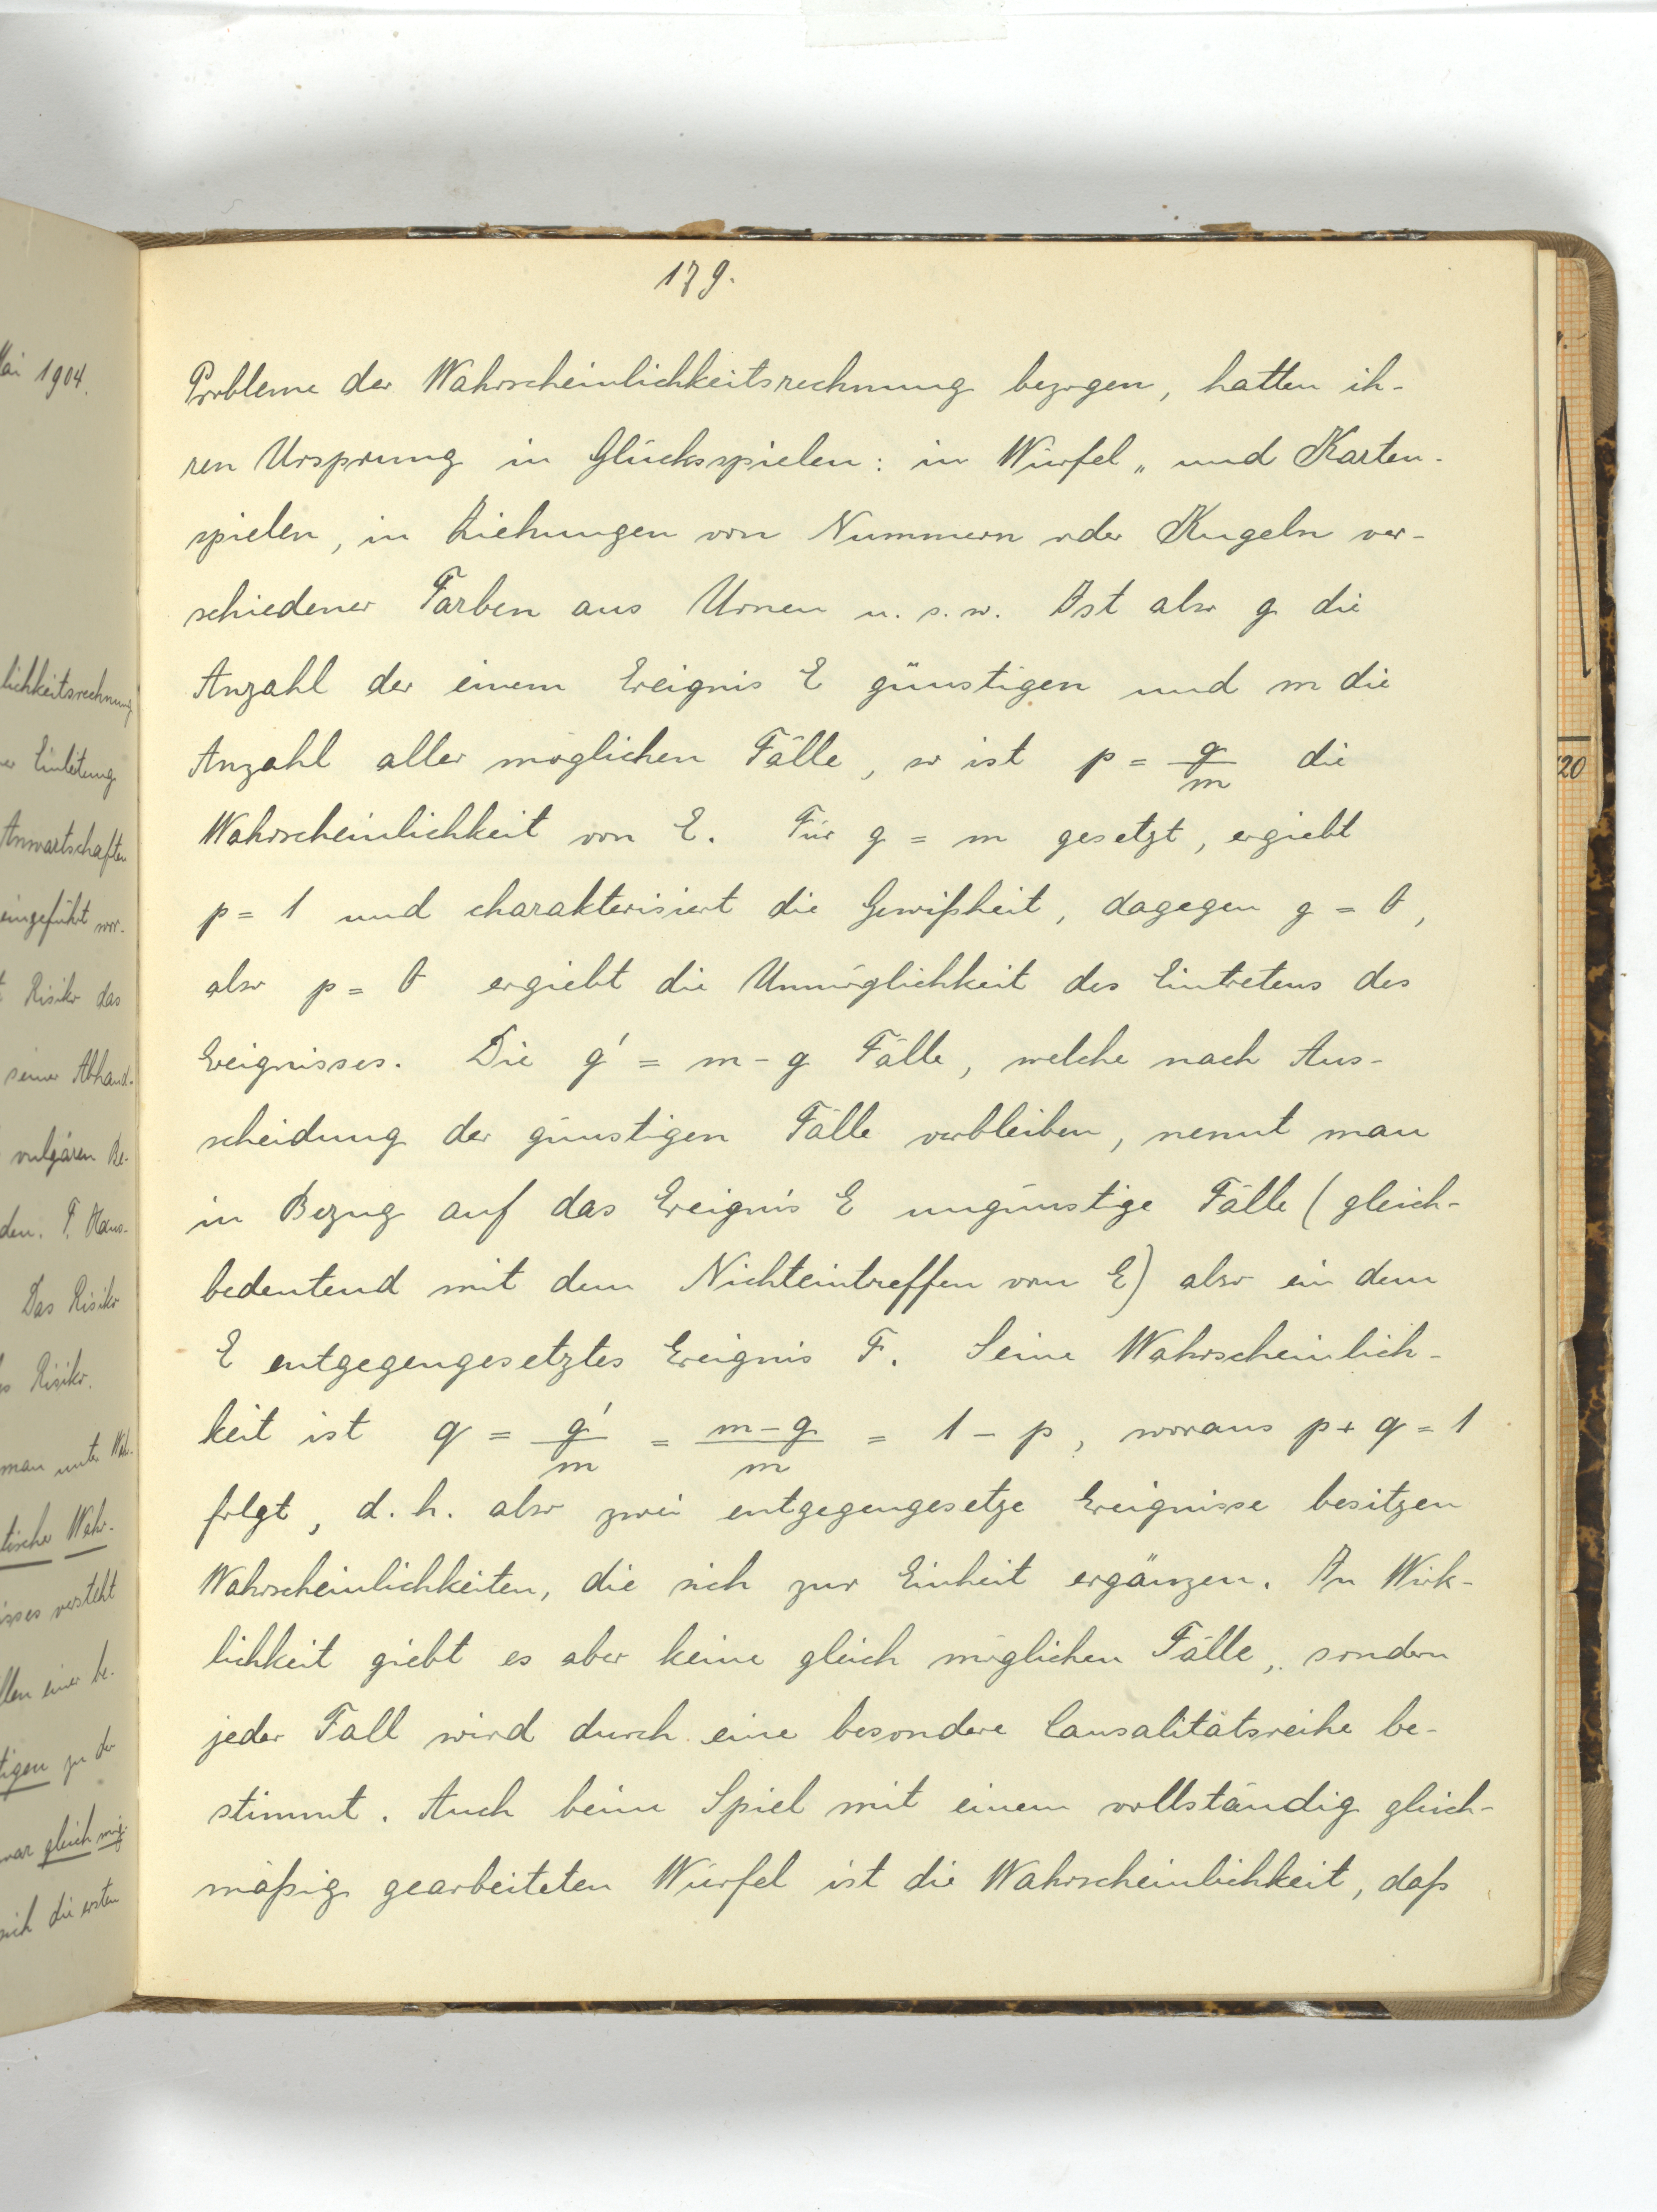 Mai 1904.
lichkeitsrechnung
Einleitung
Anwartschaften
eingeführt wor-
Risiko das
seiner Abhand-
vulgären Be-
den. F. Haus-
Das Risiko
Risiko.
man unter Wah-
tische Wahr-
versteht
einer be-
tigen zu der
gleich mög-
sich die ersten
179.
Probleme der Wahrscheinlichkeitsrechnung bezogen, hatten ih-
ren Ursprung in Glücksspielen: in Würfel „ und Karten-
spielen, in Ziehungen von Nummern oder Kugeln ver-
schiedener Farben aus Urnen u. s. w. Ist also g die
Anzahl der einem Ereignis E günstigen und m die
Anzahl aller möglichen Fälle, so ist p = g/m die
Wahrscheinlichkeit von E. Für g = m gesetzt, ergiebt
p = 1 und charakterisiert die Gewißheit, dagegen g = 0,
also p = 0 ergiebt die Unmöglichkeit des Eintretens des
Ereignisses. Die g' = m - g Fälle, welche nach Aus-
scheidung der günstigen Fälle verbleiben, nennt man
in Bezug auf das Ereignis E ungünstige Fälle (gleich-
bedeutend mit dem Nichteintreffen von E) also ein dem
E entgegengesetztes Ereignis F. Seine Wahrscheinlich-
keit ist q = g'/m = m-g/m = 1 - p, woraus p + q = 1
folgt, d. h. also zwei entgegengesetze Ereignisse besitzen
Wahrscheinlichkeiten, die sich zur Einheit ergänzen. In Wirk-
lichkeit giebt es aber keine gleich möglichen Fälle, sondern
jeder Fall wird durch eine besondere Causalitätsreihe be-
stimmt. Auch beim Spiel mit einem vollständig gleich-
mäßig gearbeiteten Würfel ist die Wahrscheinlichkeit, daß
20